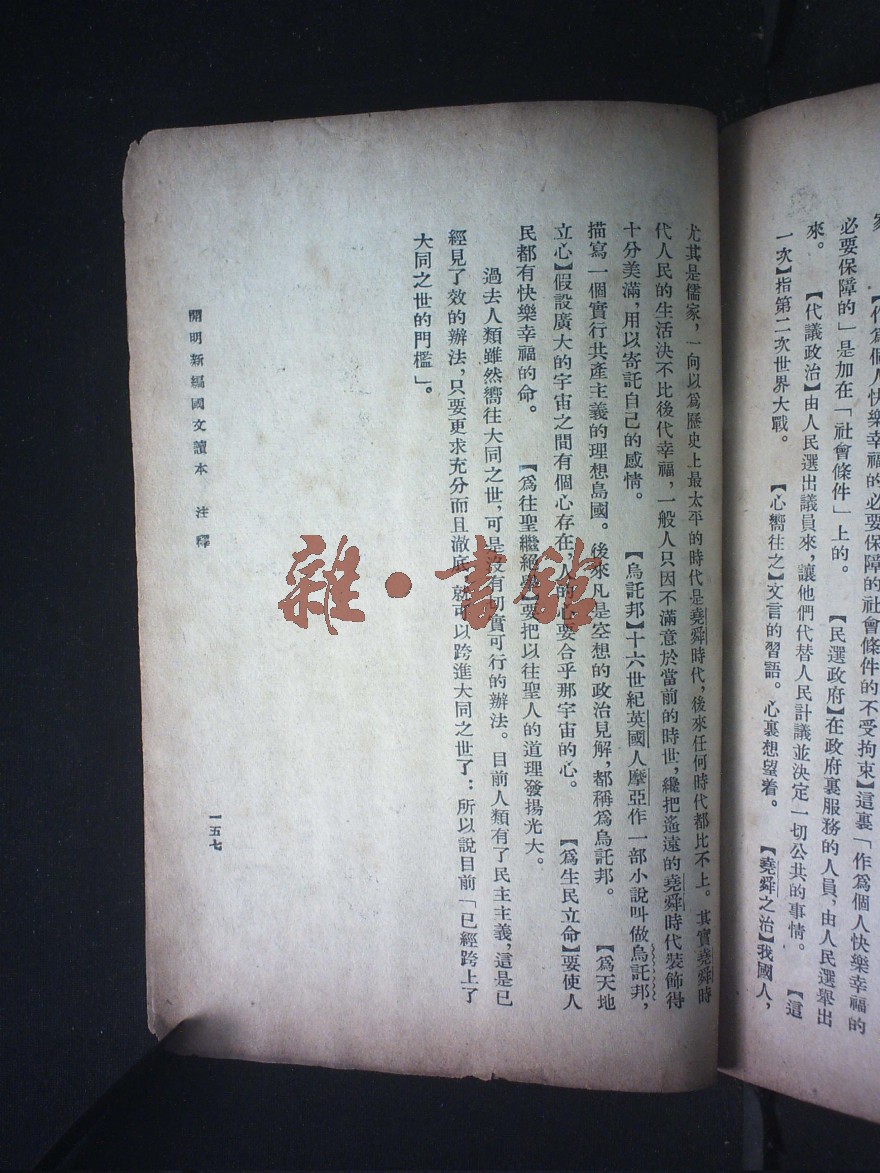 【作爲個人快樂幸福的必要保障的社會條件的不受拘束】這裏「作爲個人快樂幸福的
必要保障的」是加在「社會條件」上的。　【民選政府】在政府裏服務的人員，由人民選舉出
來。　【代議政治】由人民選出議員來，讓他們代替人民計議並決定一切公共的事情。　【這
一次】指第二次世界大戰。　【心嚮往之】文言的習語。心裏想望着。　【堯舜之治】我國人，
尤其是儒家，一向以爲歷史上最太平的時代是堯舜時代，後來任何時代都比不上。其實堯舜時
代人民的生活決不比後代幸福，一般人只因不滿意於當前的時世，纔把遙遠的堯舜時代裝飾得
十分美滿，用以寄託自己的感情。　【烏託邦】十六世紀英國人摩亞作一部小說叫做烏託邦，
描寫一個實行共產主義的理想島國。後來凡是空想的政治見解，都稱爲烏託邦。　【爲天地
立心】假設廣大的宇宙之間有個心存在，人的心要合乎那宇宙的心。　【爲生民立命】要使人
民都有快樂幸福的命。　【爲往聖繼絕學】要把以往聖人的道理發揚光大。
過去人類雖然嚮往大同之世，可是沒有切實可行的辦法。目前人類有了民主主義，這是已
經見了效的辦法，只要更求充分而且澈底，就可以跨進大同之世了：所以說目前「已經跨上了
大同之世的門檻」。
開明新編國文讀本　注釋
一五七
雜·書館